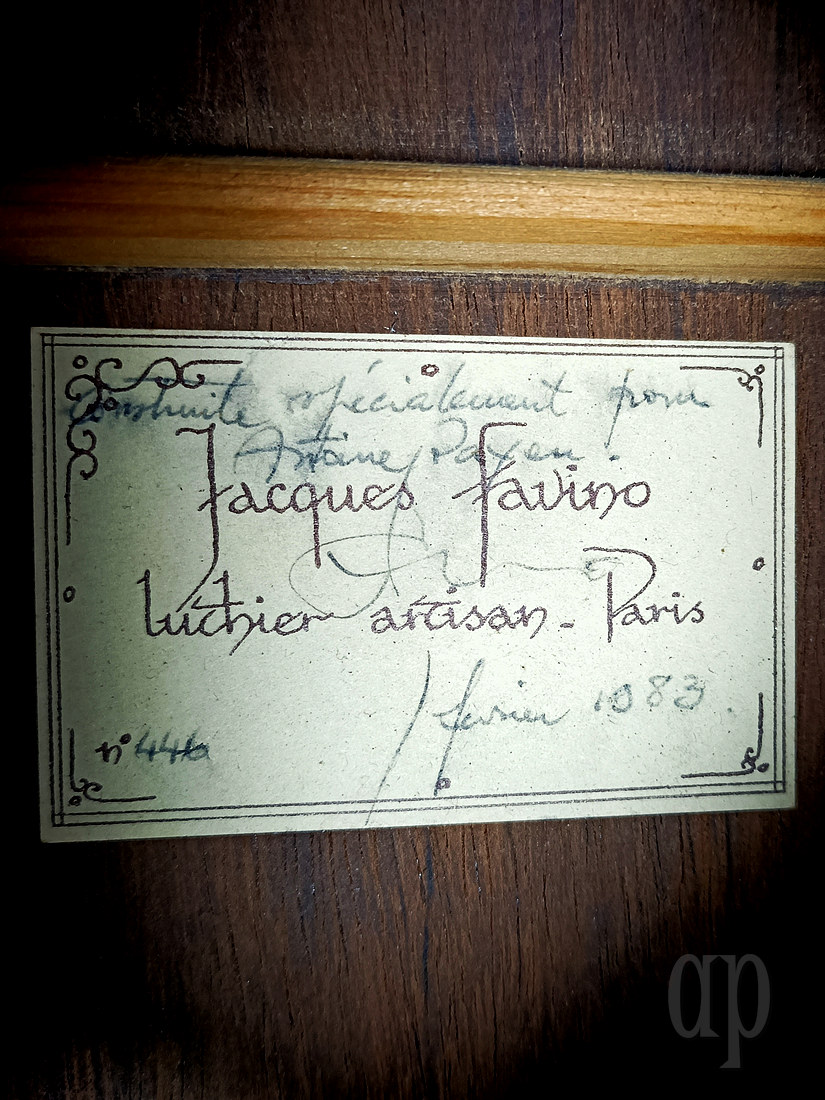 Construite spécialement pour
Antoine Payen.
Jacques Favino
luthier artisan - Paris
février 1983.
n° 446
ap